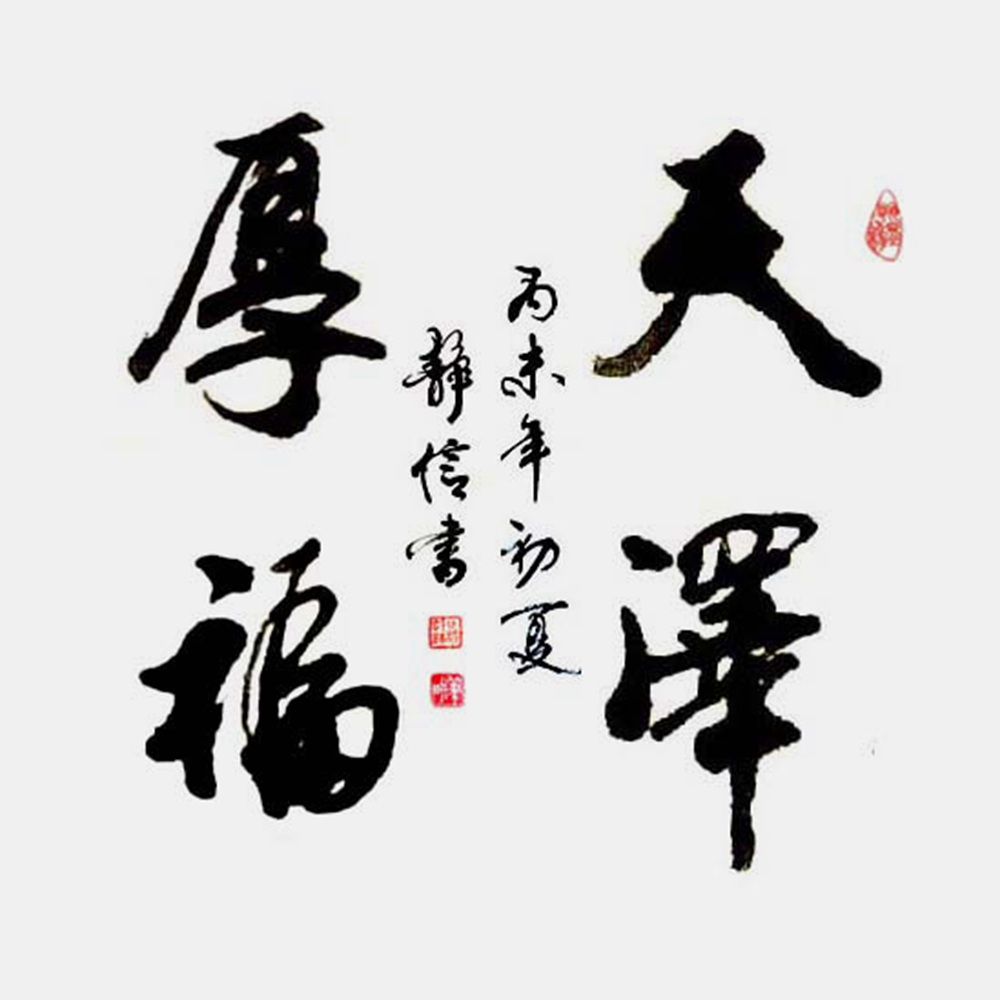 天澤
厚福
丙未年初夏
靜信書